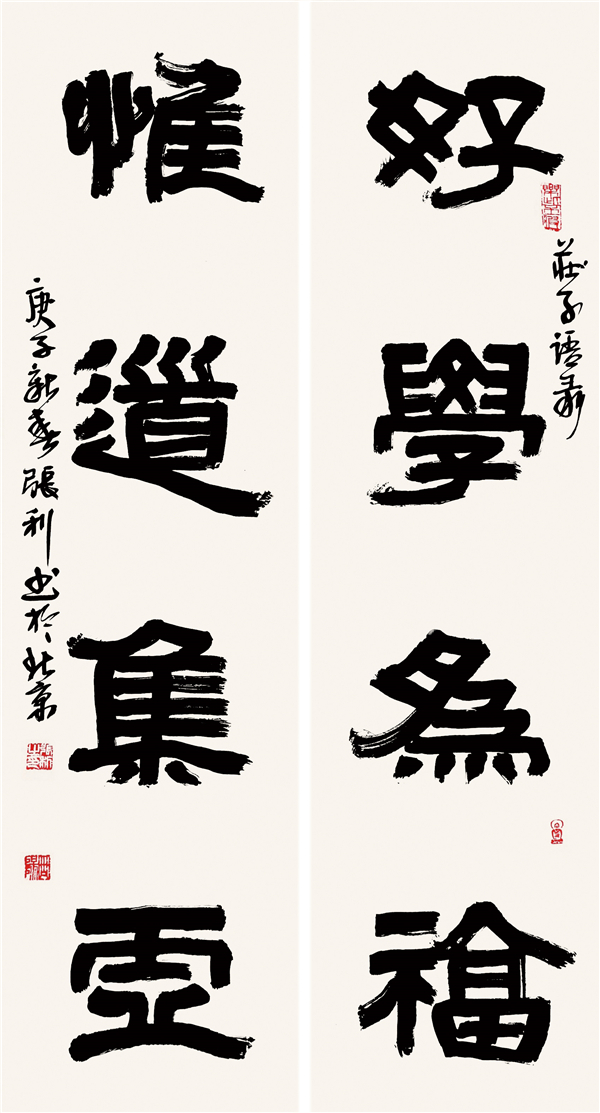 莊子語聯
好學為福
惟道集虛
庚子新春張利書於北京